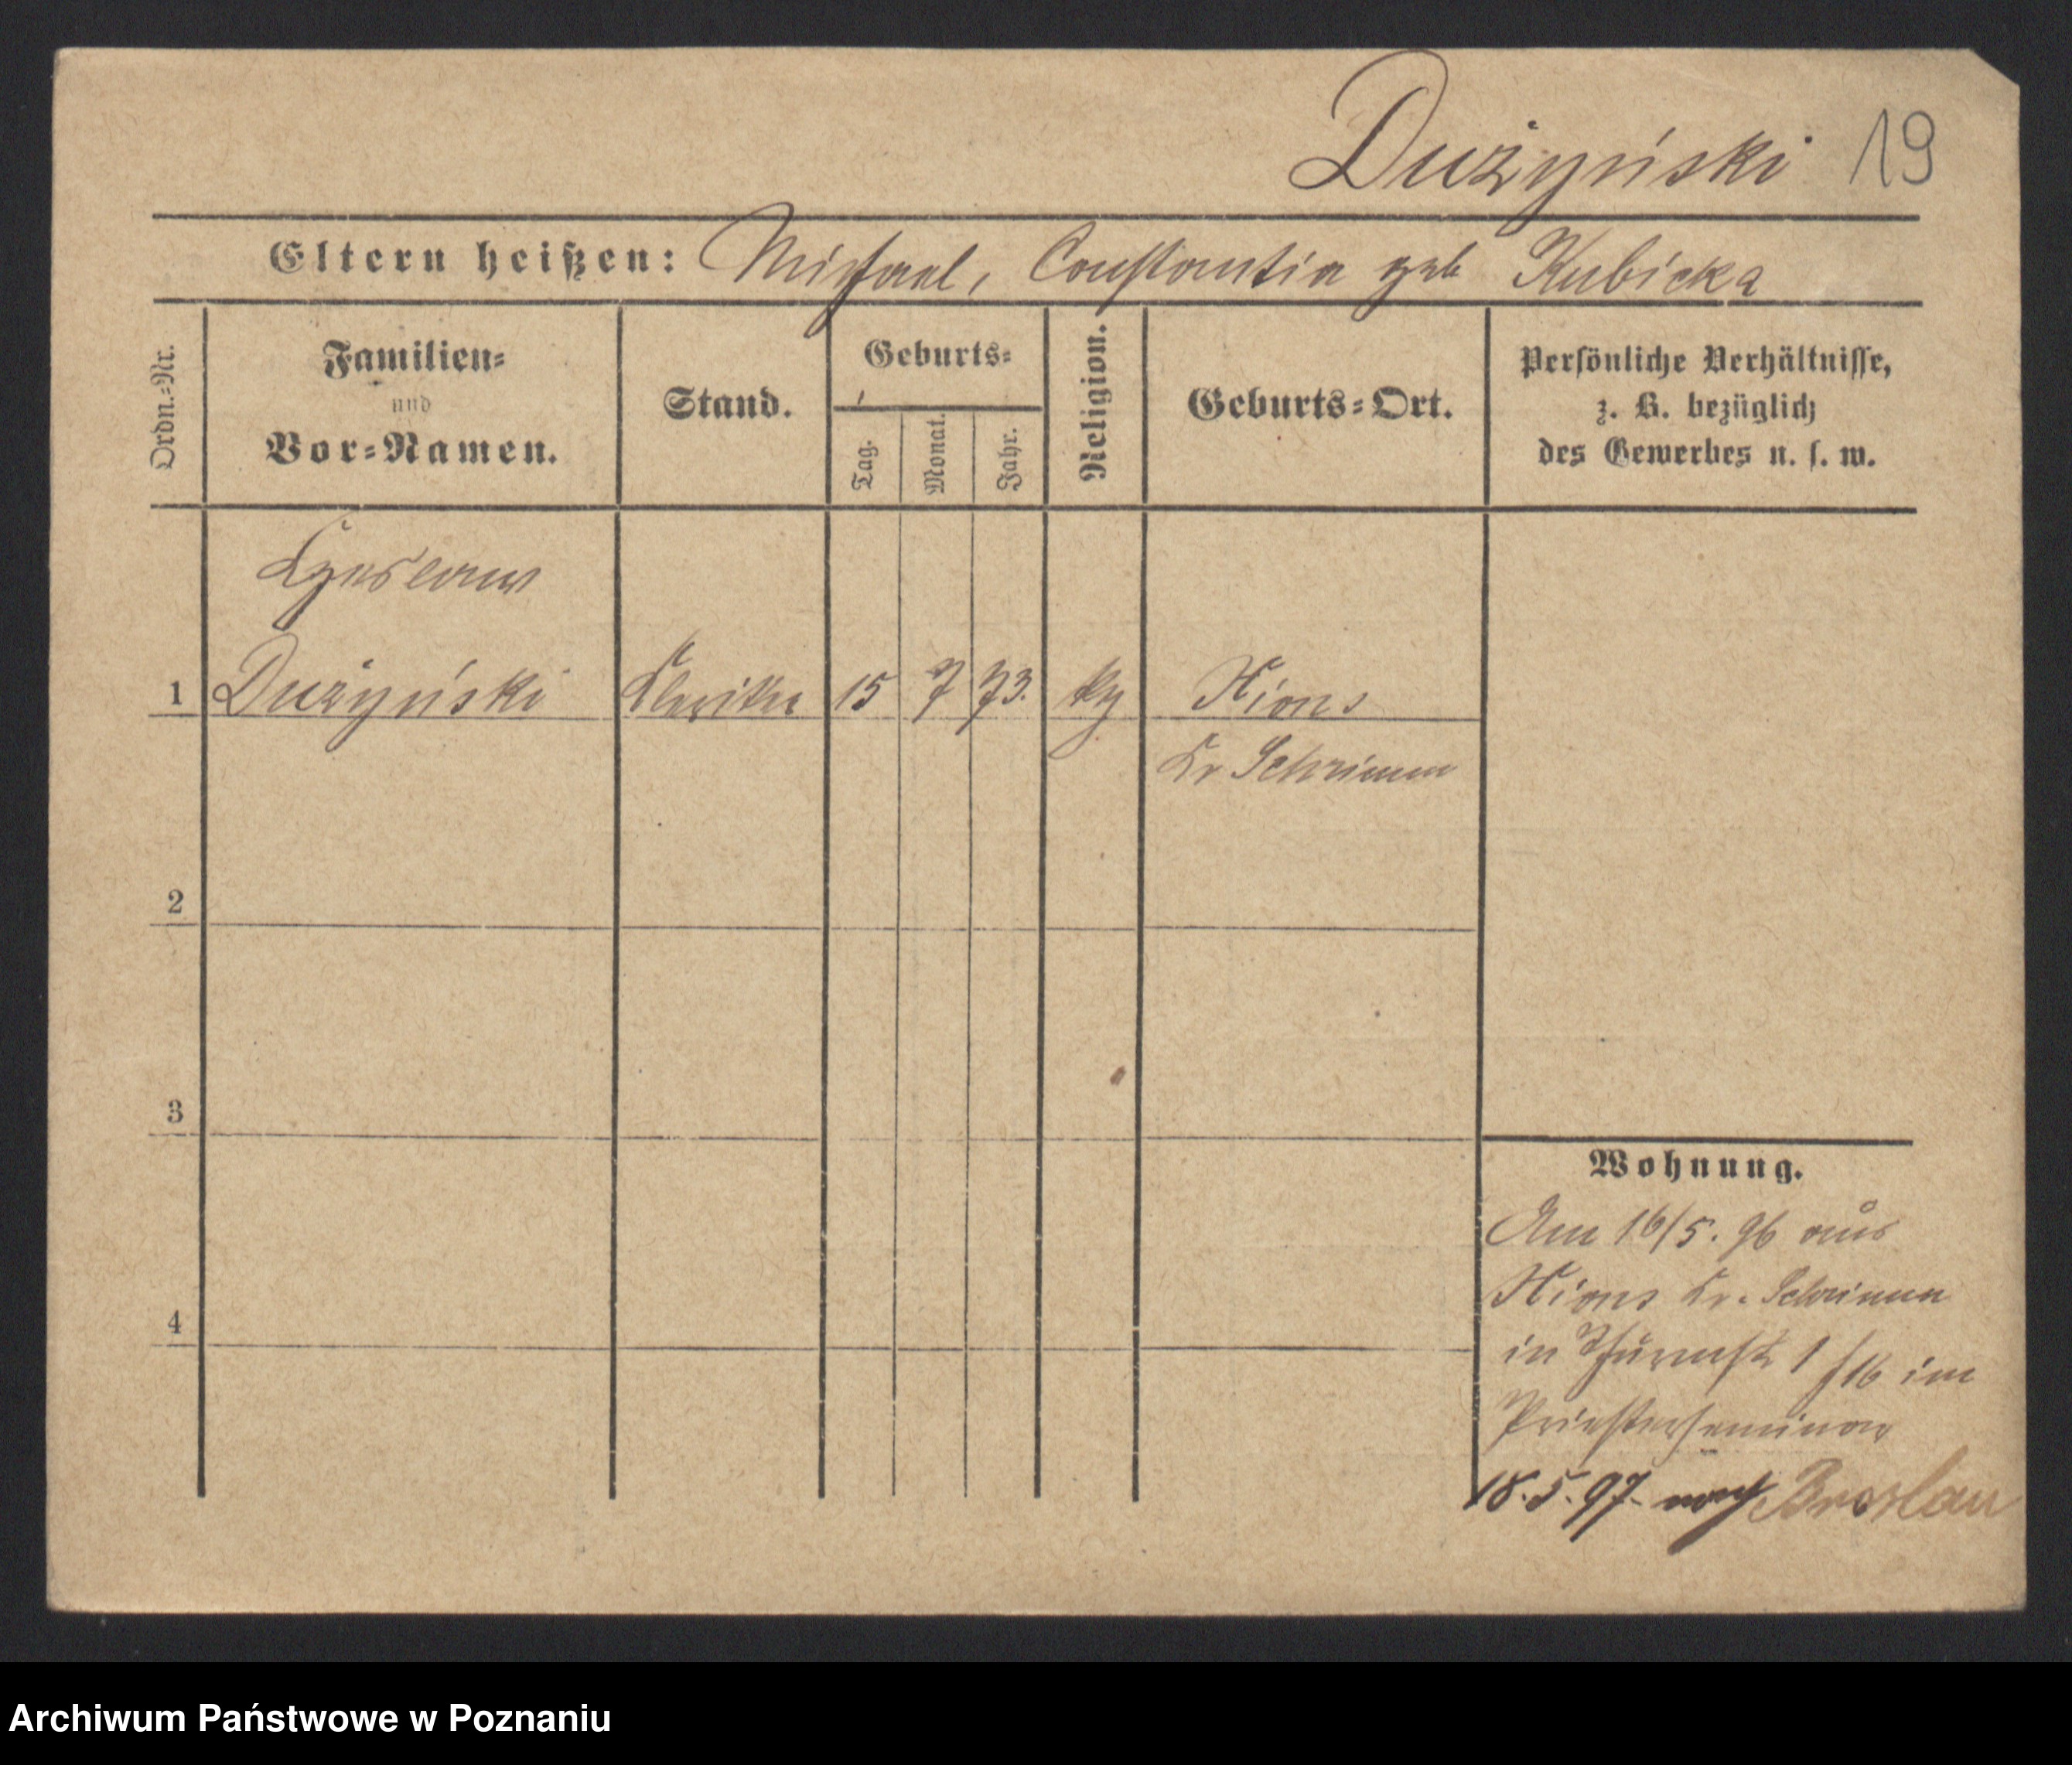 Dużyński 19
Eltern heißen: Michael, Constantia geb Kubicka
Ordn.-Nr.
Familien-
und
Vor-Namen.
Stand.
Geburts-
Tag.
Monat.
Jahr.
Religion.
Geburts-Ort.
Persönliche Verhältnisse,
z. B. bezüglich
des Gewerbes u. s. w.
Czeslaus
1 Dużyński Kleriker 15 7 73. Xions
Kr Schrimm
2
3
4
Wohnung.
Am 16/5. 96 aus
Xions Kr. Schrimm
in Thurmstr 1 /16 im
Priesterseminar
18.5.97. nach Breslau
Archiwum Państwowe w Poznaniu